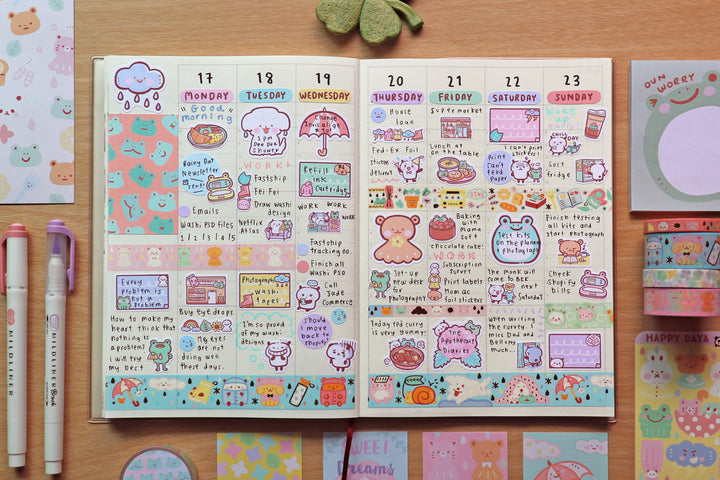 17
MONDAY
"Good
morning
Rainy Day
Newsletter
sent!
Emails
Washi PSD files
1 2 3 4 5
Every
problem is
not a
problem!
How to make my
heart think that
nothing is
a problem?
I will try
my best
18
TUESDAY
1 PM
Dee Dee
Shower
WORK
Fastship
Fei Fei
Draw washi
design
Netflix
Atlas
Photography
washi
tapes
Buy eye drops
My eyes
are not
doing well
these days.
I'm so proud
of my washi
designs
19
WEDNESDAY
Change
Refill
ink
Cartridge
WORK WORK
WORK
Fastship
tracking no.
Finish all
washi PSD
Call
Jade
Commerce
Should i
move back
to Shopify?
20
THURSDAY
House
loan
Fed-Ex Foil
sticker
delivery
Set-up
new desk
for
photography
Today red curry
is very yummy
21
FRIDAY
Supermarket
Lunch at
on the table
Baking
with
mama
Cott
chocolate cake!
WORK
Subscription
Survey
Print labels
Mom ac
foil stickers
The
Apothecary
Diaries
22
SATURDAY
I can't print
stickers!
Print
Can't
feed
Paper
Test kits
on the planner
photograph
The monk will
come to BKK
next
Saturday
When writing
the survey, I
miss Dad and
Bellamy
much...
23
SUNDAY
Wake
up
CHILL
DAY
Sort
fridge
Finish testing
all kits and
start photograph
Check
Shopify
bills
DUN
WORRY
MILDLINER
MILDLINER Brush
HAPPY DAYA
SWEET
Dreams